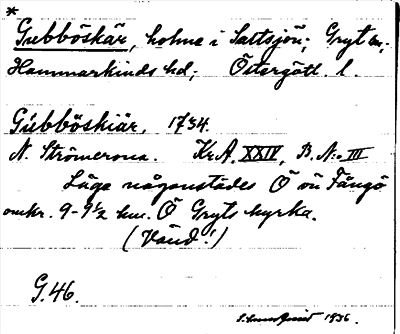 *
Gubböskär, holme i Saltsjön; Gryt sn;
Hammarkinds hd; Östergötl. l.
Gúbböskiär, 1734.
N. Strömcrona. Kr.A. XXIV, B. N:o III
Låge någonstädes Ö om Fångö
omkr. 9-9½ km. Ö Gryts kyrka.
(Vänd!)
G.46.
1936.